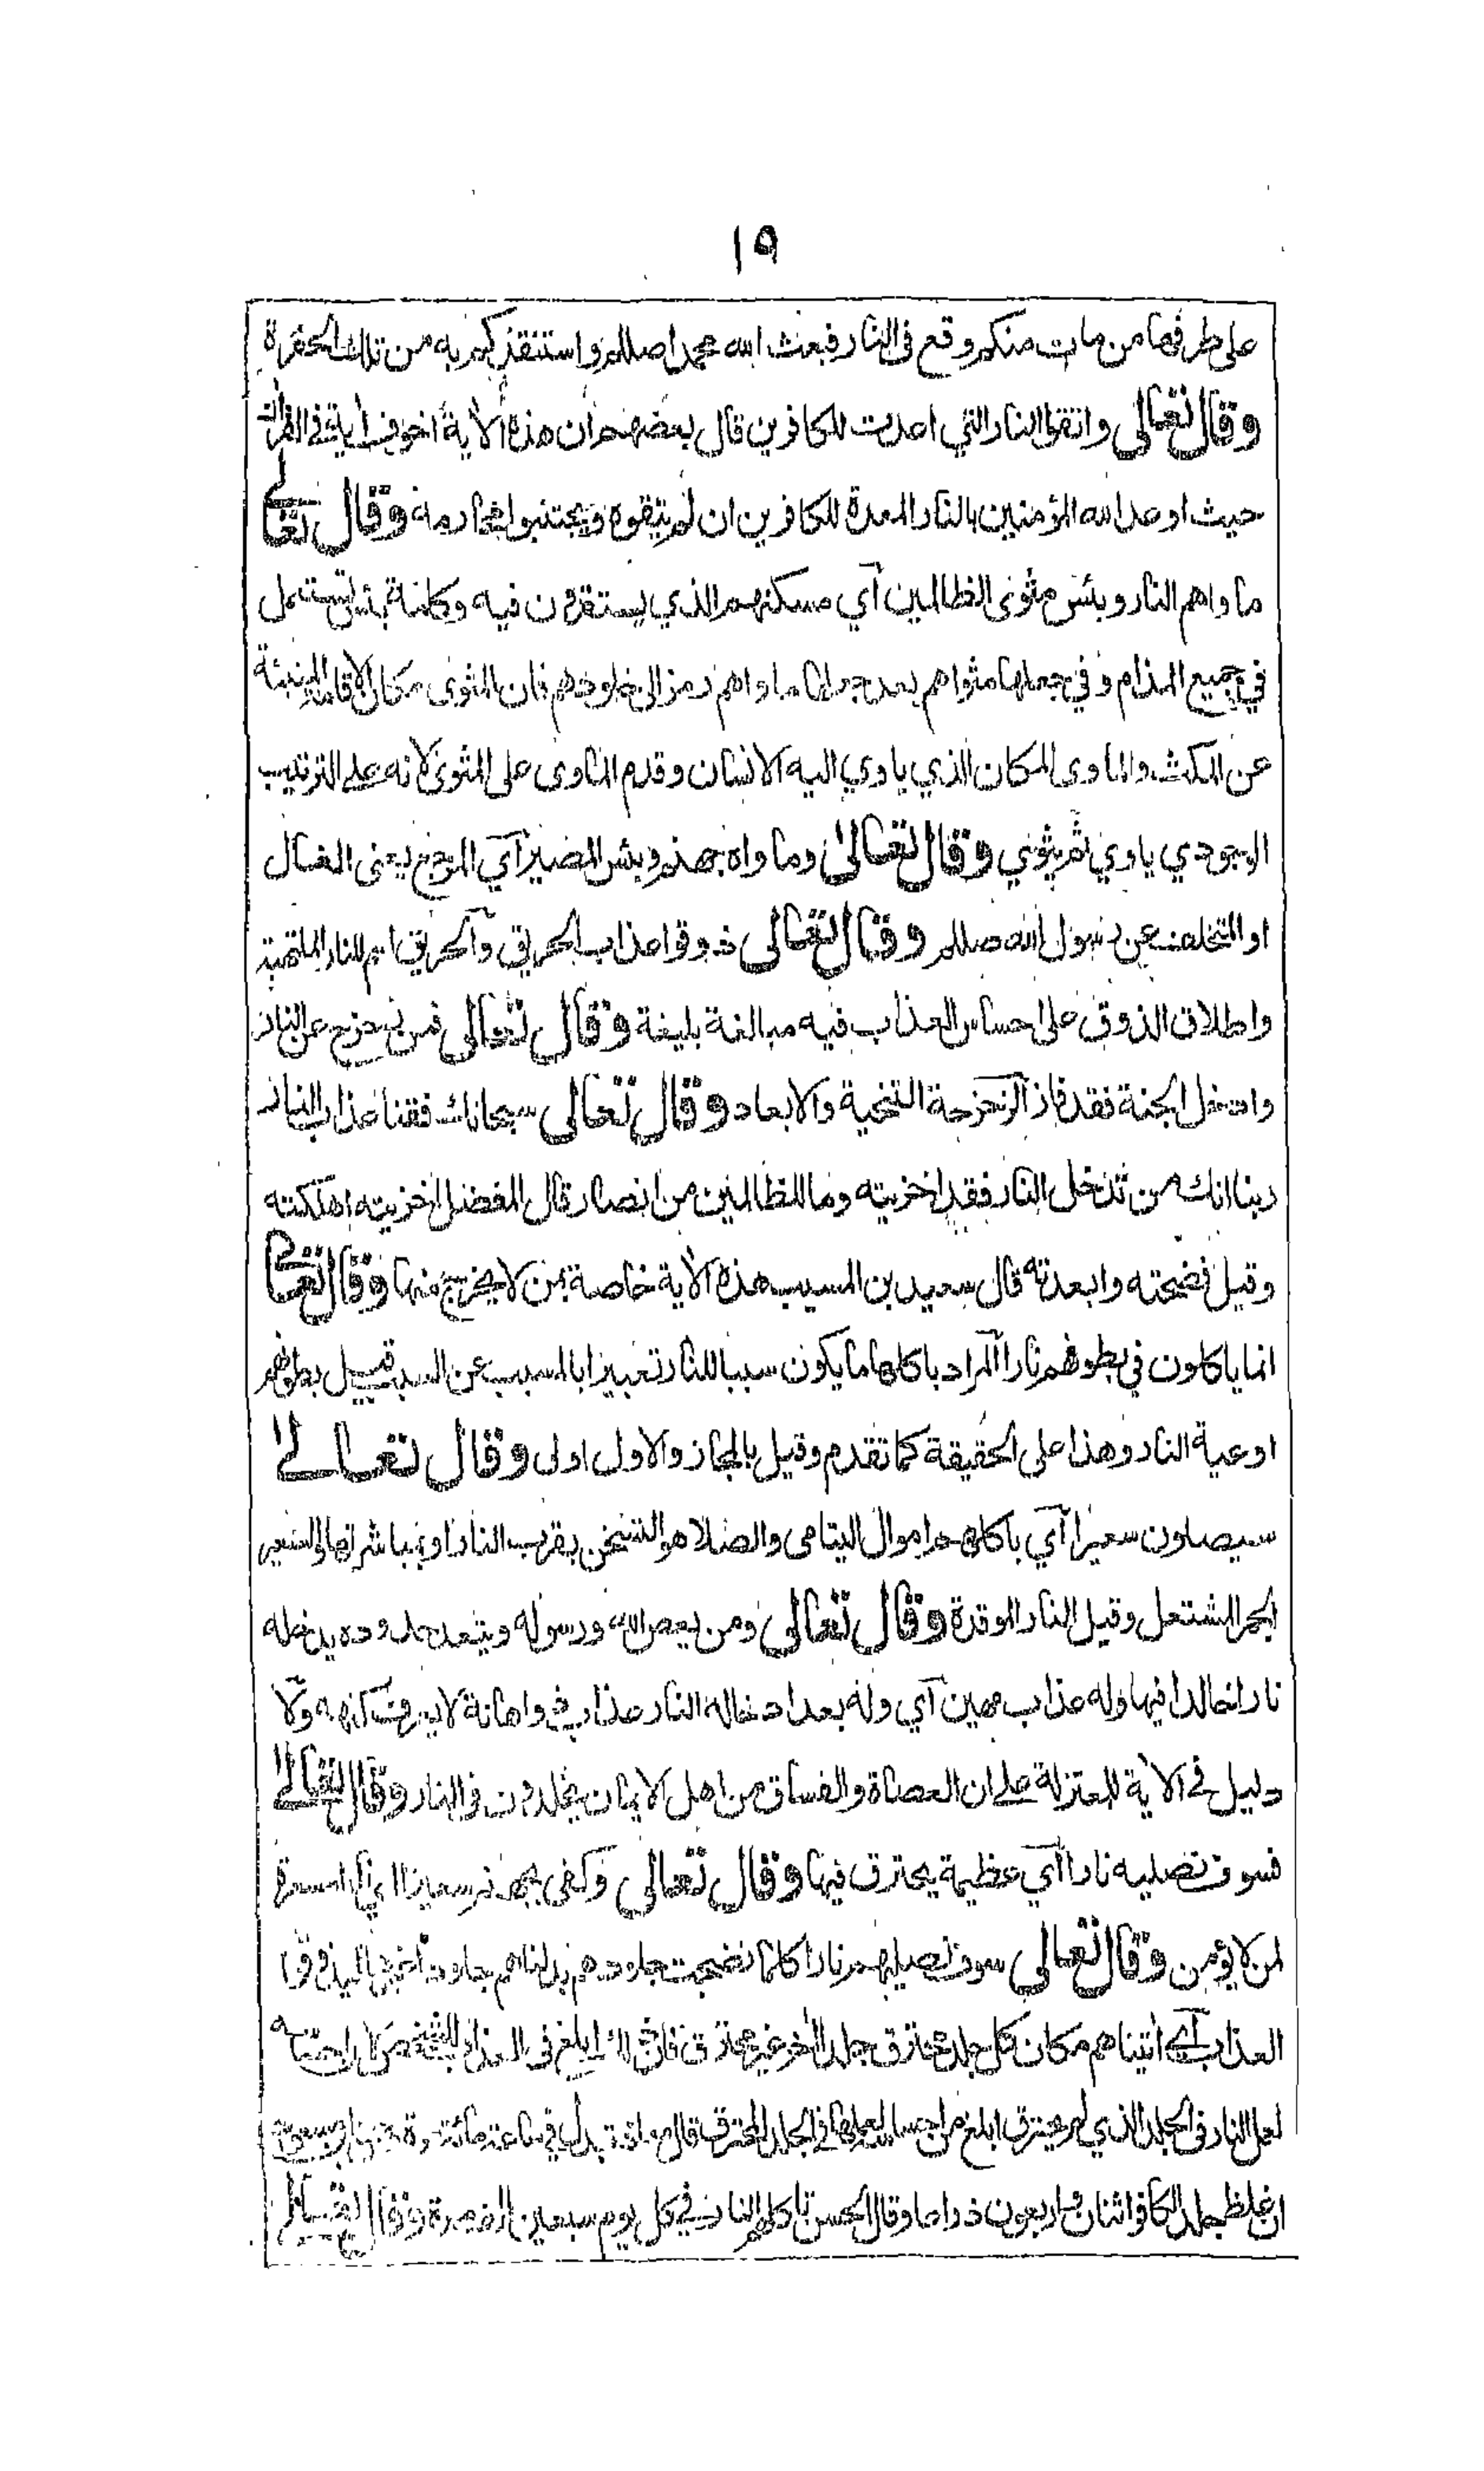 ١٩
على طرفها من مات منكم وقع في النار فبعث الله محمدا صللم واستنقذكم به من تلك الحفرة
وقال تعالى واتقوا النار التي اعدت للكافرين قال بعضهم ان هذه الآية اخوف آية في القرآن
حيث اوعد الله المؤمنين بالنار المعدة للكافرين ان لم يتقوه ويجتنبوا محارمه وقال تعالى
ماواهم النار وبئس مثوى الظالمين آي مسكنهم الذي يستقرون فيه وكلمة بئس تستعمل
في جميع المذام وفي جعلها مثواهم بعد جعلها ماواهم رمز الى خلودهم فان المثوى مكان الاقامة المنبئة
عن المكث والماوى المكان الذي ياوي اليه الانسان وقدم الماوى على المثوى لانه على الترتيب
الوجودي ياوي ثم يثوي وقال تعالى وماواه جهنم وبئس المصير آي المرجع يعنى الغال
او المتخلف عن رسول الله صللم وقال تعالى ذوقوا عذاب الحريق وآلحريق اسم للنار الملتهبة
واطلاق الذوق على احساس العذاب فيه مبالغة بليغة وقال تعالى فمن زحزح عن النار
وادخل الجنة فقد فاز آلزحزحة التنحية والابعاد وقال تعالى سبحانك فقنا عذاب النار
ربنا انك من تدخل النار فقد اخزيته وما للظالمين من انصار قال المفضل اخزيته اهلكته
وقيل فضحته وابعدته قال سعيد بن المسيب هذه الآية خاصة بمن لا يخرج منها وقال تعالى
انما ياكلون في بطونهم نارا آلمراد باكلها ما يكون سببا للنار تعبيرا بالمسبب عن السبب قيل بطونهم
اوعية النار وهذا على الحقيقة كما تقدم وقيل بالمجاز والاول اولى وقال تعالى
سيصلون سعيرا آي باكلهم اموال اليتامى والصلا هو التسخن بقرب النار او بمباشرتها والسعير
الجمر المشتعل وقيل النار الموقدة وقال تعالى ومن يعص الله ورسوله ويتعد حدوده يدخله
نارا خالدا فيها وله عذاب مهين آي وله بعد ادخاله النار عذاب ذو اهانة لا يعرف كنهه ولا
دليل في الآية للمعتزلة على ان العصاة والفساق من اهل الايمان يخلدون في النار وقال تعالى
فسوف نصليه نارا آي عظيمة يحترق فيها وقال تعالى وكفى بجهنم سعيرا اي نارا مسعرة
لمن لا يؤمن وقال تعالى سوف نصليهم نارا كلما نضجت جلودهم بدلناهم جلودا غيرها ليذوقوا
العذاب آي اتيناهم مكان كل جلد محترق جلدا اخر غير محترق فان ذلك ابلغ في العذاب للشخص لان احساسه
لعمل النار في الجلد الذي لم يحترق ابلغ من احساسه لعملها في الجلد المحترق قال معاذ تبدل في ساعة مائة مرة
ان غلظ جلد الكافر اثنان واربعون ذراعا وقال الحسن تاكلهم النار في كل يوم سبعين الف مرة وقال تعالى